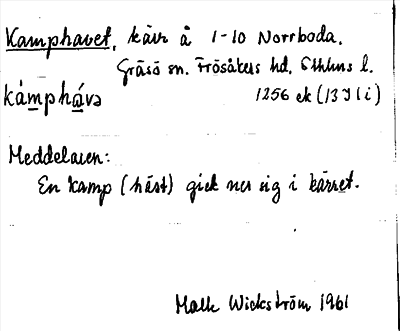 Kamphavet, kärr å 1-10 Norrboda.
Gräsö sn. Frösåkers hd. Sthlms l.
kámphávə 1256 ek (13 I i)
Meddelaren:
En kamp (häst) gick ner sig i kärret.
Malk Wickström 1961